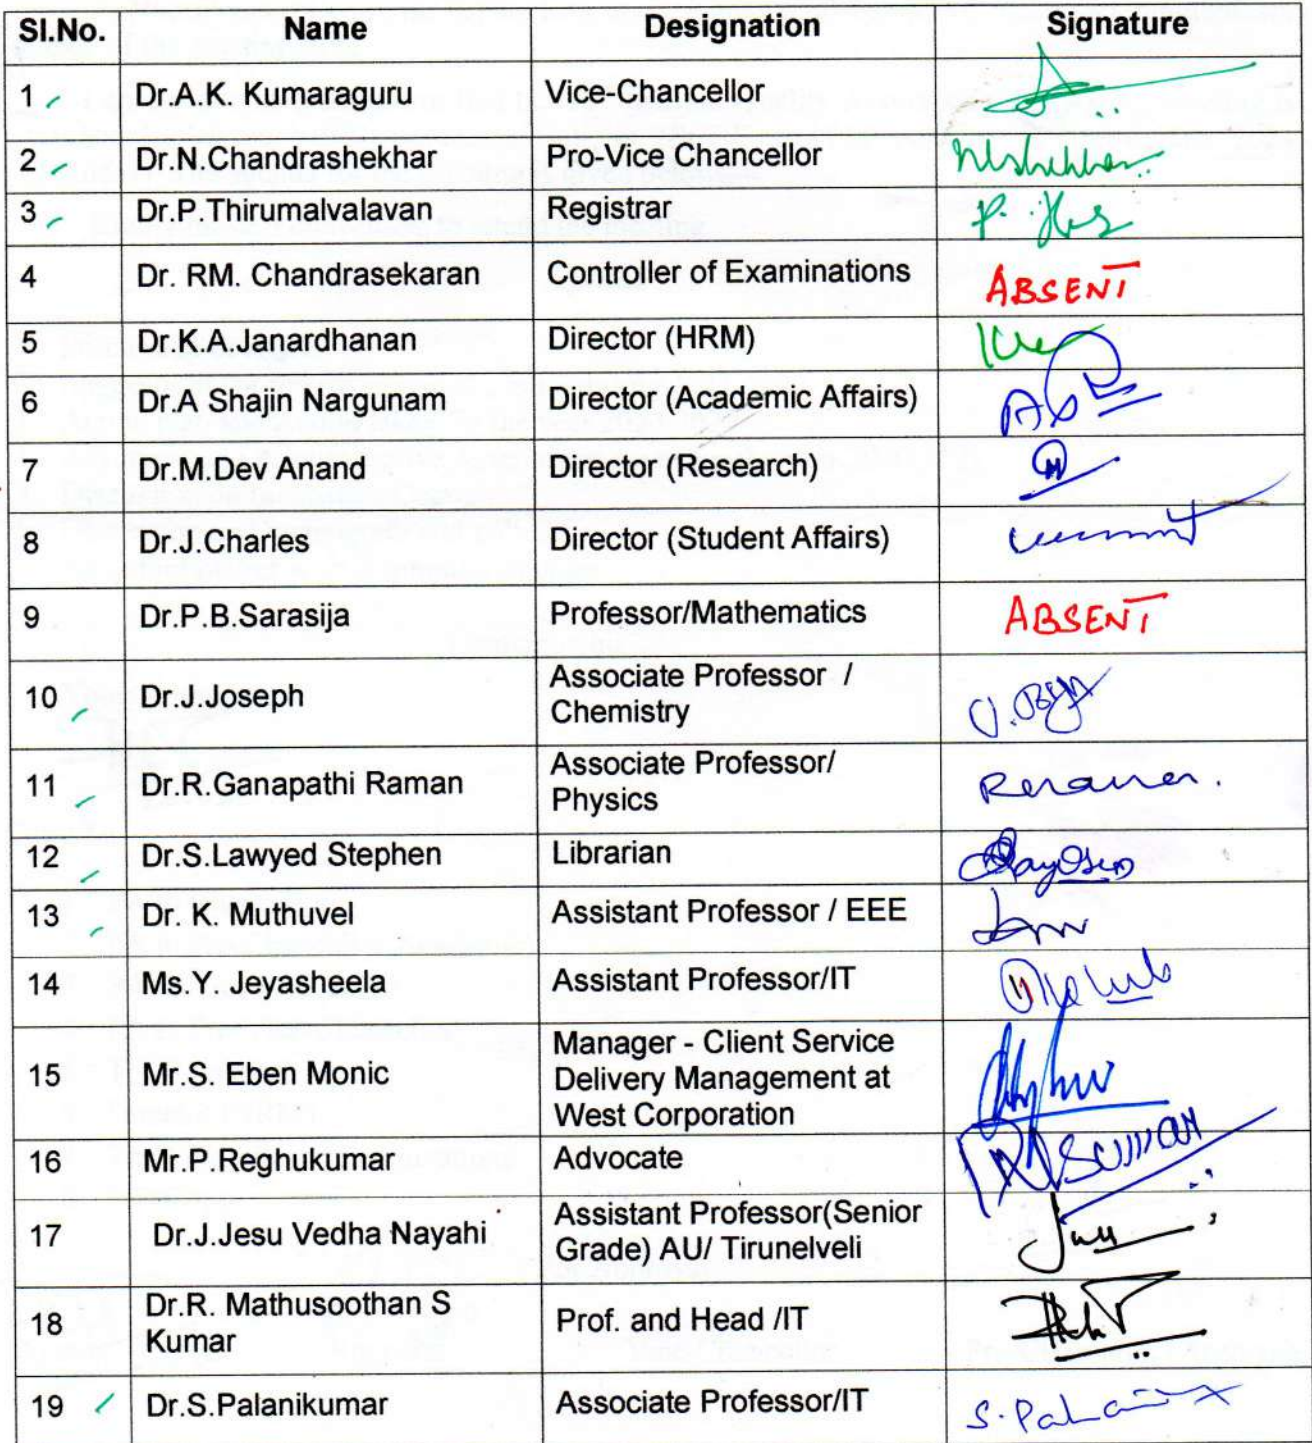 Sl.No. Name Designation Signature
1 Dr.A.K. Kumaraguru Vice-Chancellor
2 Dr.N.Chandrashekhar Pro-Vice Chancellor
3 Dr.P.Thirumalvalavan Registrar
4 Dr. RM. Chandrasekaran Controller of Examinations ABSENT
5 Dr.K.A.Janardhanan Director (HRM)
6 Dr.A Shajin Nargunam Director (Academic Affairs)
7 Dr.M.Dev Anand Director (Research)
8 Dr.J.Charles Director (Student Affairs)
9 Dr.P.B.Sarasija Professor/Mathematics ABSENT
10 Dr.J.Joseph Associate Professor /
Chemistry
11 Dr.R.Ganapathi Raman Associate Professor/
Physics
12 Dr.S.Lawyed Stephen Librarian
13 Dr. K. Muthuvel Assistant Professor / EEE
14 Ms.Y. Jeyasheela Assistant Professor/IT
15 Mr.S. Eben Monic Manager - Client Service
Delivery Management at
West Corporation
16 Mr.P.Reghukumar Advocate
17 Dr.J.Jesu Vedha Nayahi Assistant Professor(Senior
Grade) AU/ Tirunelveli
18 Dr.R. Mathusoothan S
Kumar Prof. and Head /IT
19 Dr.S.Palanikumar Associate Professor/IT